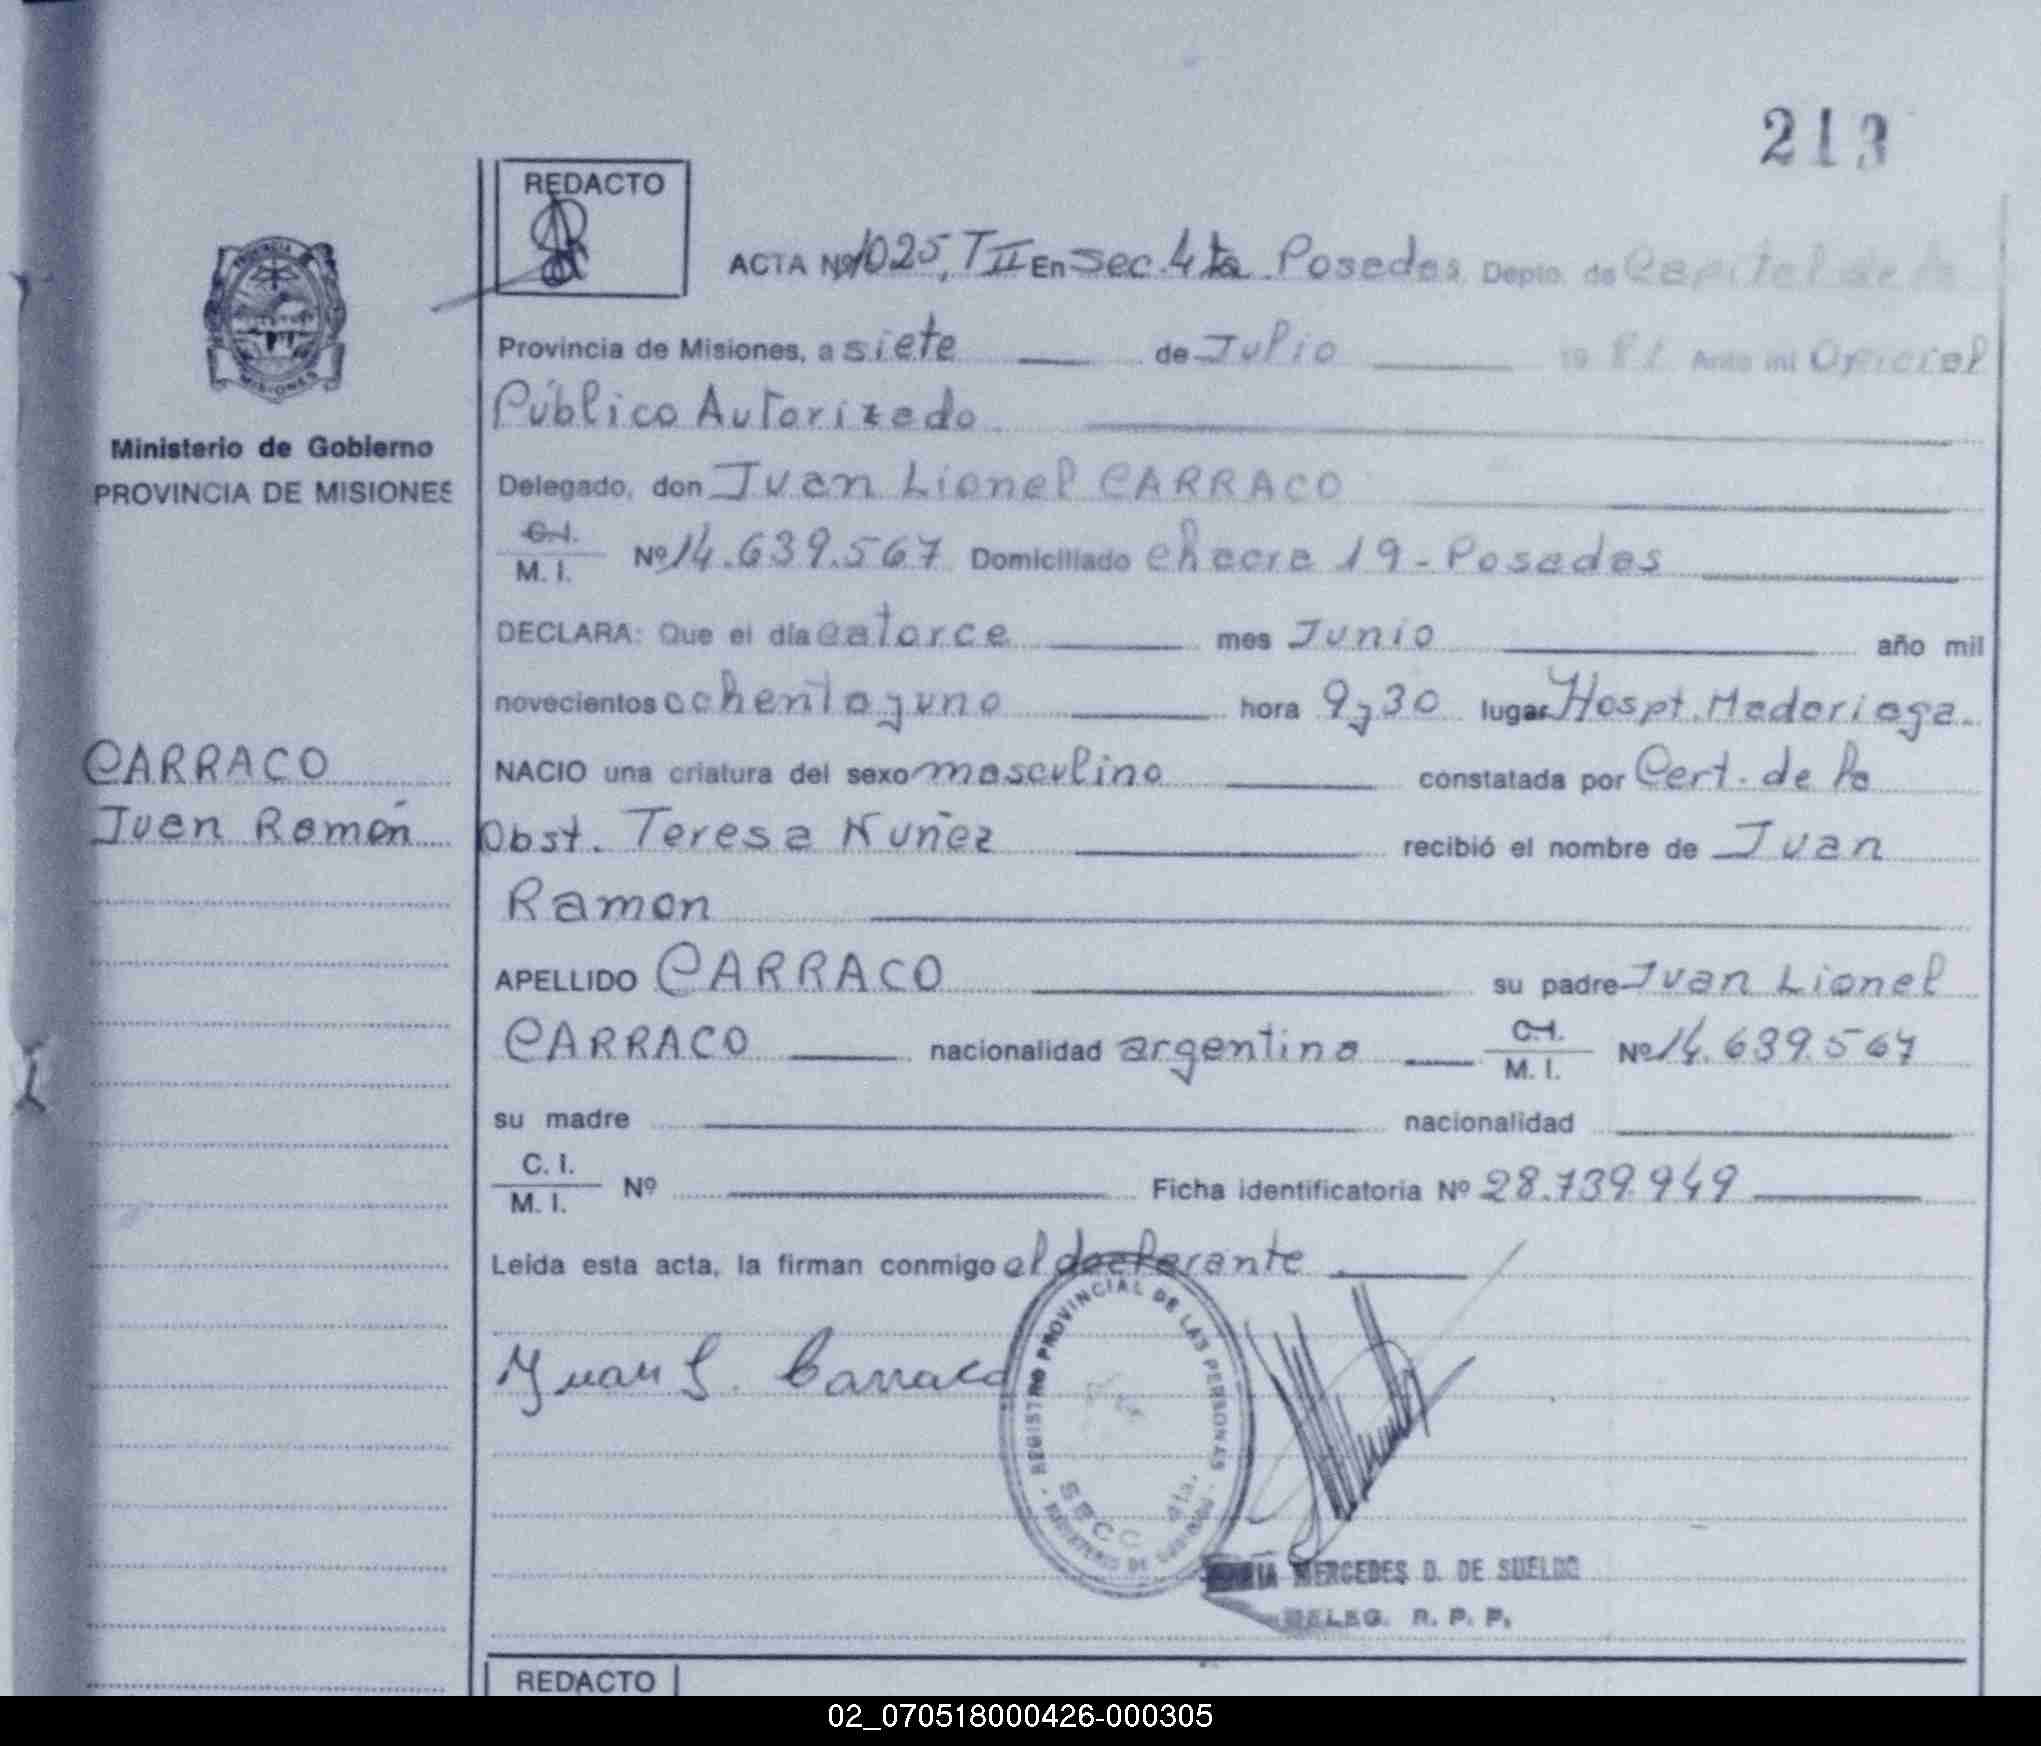 213
REDACTO
ACTA Nº 1025, T II En Sec. 4ta Posadas, Depto. de Capital de la
Provincia de Misiones, a siete de Julio 1981 Ante mi Oficial
Público Autorizado
Delegado, don Juan Lionel CARRACO
C.I.
M. I. Nº 14.639.567 Domiciliado Chacra 19 - Posadas
DECLARA: Que el día catorce mes Junio año mil
novecientos ochenta y uno hora 9,30 lugar Hospt. Madariaga.
NACIO una criatura del sexo masculino constatada por Cert. de la
Obst. Teresa Nuñez recibió el nombre de Juan
Ramon
APELLIDO CARRACO su padre Juan Lionel
CARRACO nacionalidad argentina C.I.
M. I. Nº 14.639.567
su madre nacionalidad
C. I.
M. I. Nº Ficha identificatoria Nº 28.739.949
Leída esta acta, la firman conmigo el declarante
Juan L. Carraco
REGISTRO PROVINCIAL DE LAS PERSONAS
SECC. 4ta.
MINISTERIO DE GOBIERNO
MARIA MERCEDES D. DE SUELDO
DELEG. R. P. P.
REDACTO
PROVINCIA
MISIONES
Ministerio de Gobierno
PROVINCIA DE MISIONES
CARRACO
Juan Ramón
02_070518000426-000305